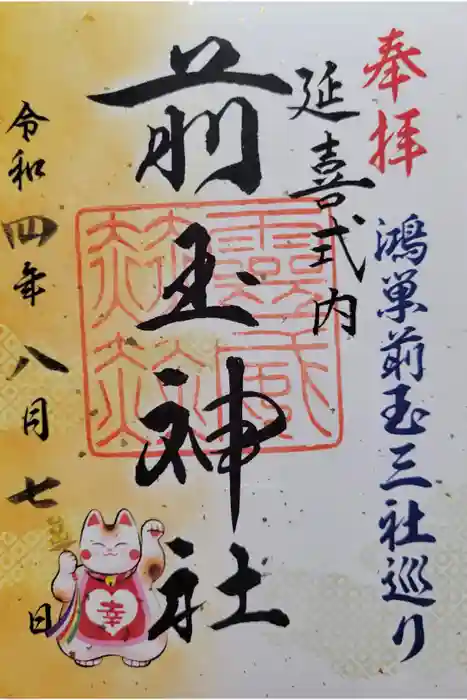 奉拝
鴻巣前玉三社巡り
延喜式内
前玉神社
靈威赫赫
令和四年八月七日
幸